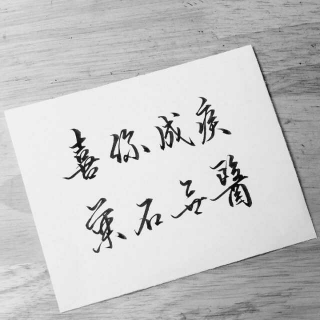 喜你成疾
药石无醫